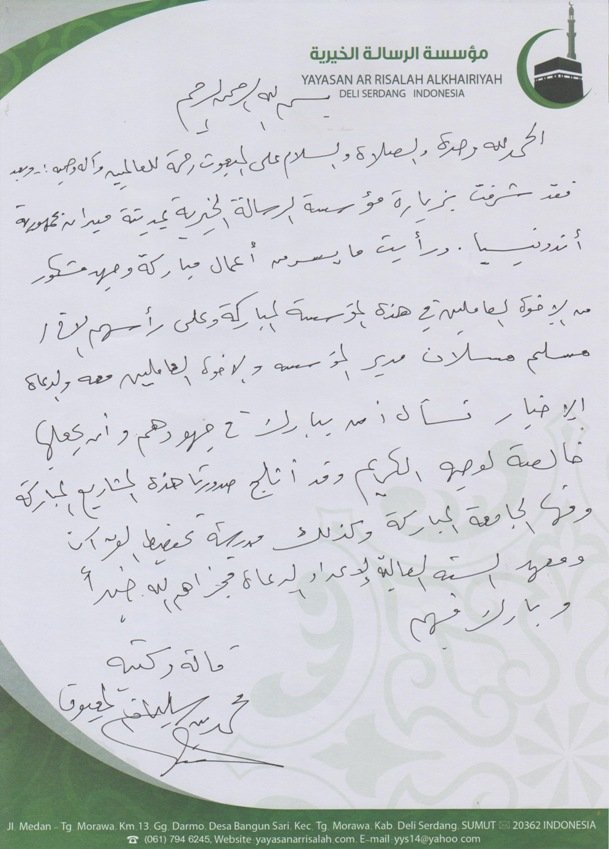 مؤسسة الرسالة الخيرية
YAYASAN AR RISALAH ALKHAIRIYAH
DELI SERDANG INDONESIA
بسم الله الرحمن الرحيم
الحمد لله وحدة والصلاة والسلام على المبعوث رحمة للعالمين وآله وصحبه .. وبعد
فقد شرفت بزيارة مؤسسة الرسالة الخيرية بمدينة ميدان بجمهورية
أندونيسيا . ورأيت ما يسر من أعمال مباركة وجهد مشكور
من الإخوة العاملين في هذة المؤسسة المباركة وعلى رأسهم الأخ /
مسلم مدير المؤسسه والإخوة العاملين معه والدعاة
الأخيار نسأل أن يبارك في جهودهم وأن يجعلها
خالصة لوجهه الكريم وقد أثلج صدورنا هذة المشاريع المباركة
ومنها الجامعة المباركة وكذلك مدرسة تحفيظ القرآن
ومعهد السنه العالية لإعداد الدعاة فجزاهم الله خيراً
وبارك فيهم
قاله وكتبه
محمد بن
Jl. Medan – Tg. Morawa. Km 13. Gg. Darmo. Desa Bangun Sari. Kec. Tg. Morawa. Kab. Deli Serdang. SUMUT ✉ 20362 INDONESIA
☎ (061) 794 6245, Website :yayasanarrisalah.com. E-mail :yys14@yahoo.com